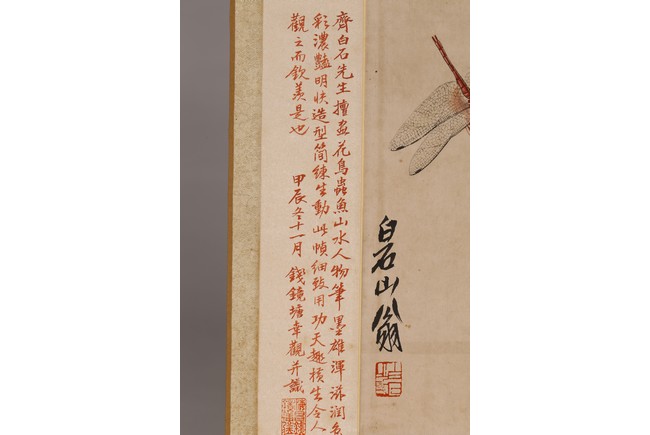 齊白石先生擅画花鳥蟲魚山水人物筆墨雄渾滋润色
彩濃豔明快造型简練生動此幀细致用功天趣橫生令人
觀之而欽羨是也
甲辰冬十一月 錢鏡塘幸觀并識
白石山翁